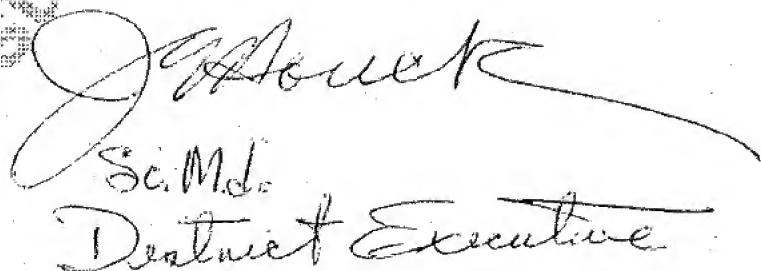 J G Houck
So. Md.
District Executive